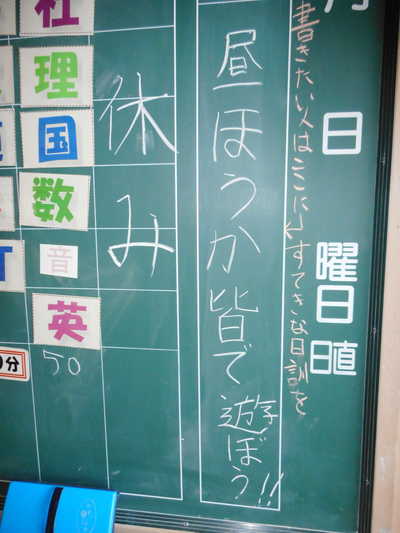 月 日 曜日
日直
書きたい人はここに↓すてきな日訓を
昼ほうか皆で遊ぼう!!
休み
社
理
国
数
音
英
50
分